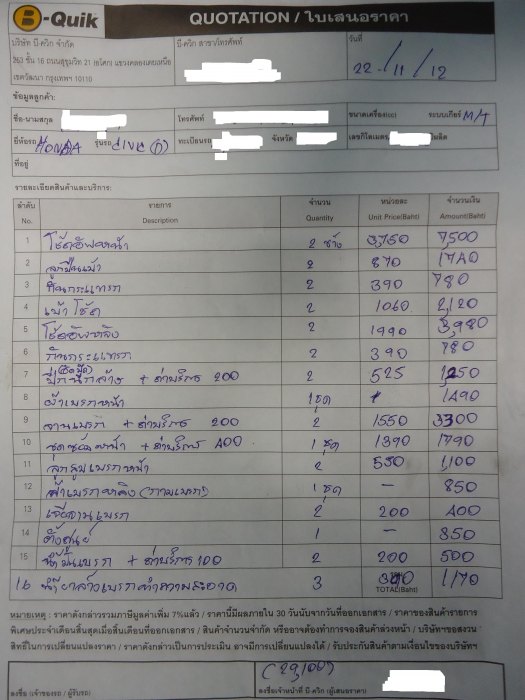 B-Quik
QUOTATION / ใบเสนอราคา
บริษัท บี-ควิก จำกัด
253 ชั้น 16 ถนนสุขุมวิท 21 (อโศก) แขวงคลองเตยเหนือ
เขตวัฒนา กรุงเทพฯ 10110
บี-ควิก สาขา/โทรศัพท์
วันที่
22/11/12
ข้อมูลลูกค้า:
ชื่อ-นามสกุล โทรศัพท์ ขนาดเครื่อง(cc) ระบบเกียร์ M/T
ยี่ห้อรถ HONDA รุ่นรถ civic ทะเบียนรถ จังหวัด เลขกิโลเมตร
ที่อยู่
รายละเอียดสินค้าและบริการ:
ลำดับ รายการ จำนวน หน่วยละ จำนวนเงิน
No. Description Quantity Unit Price(Baht) Amount(Baht)
1 โช้คอัพหน้า 2 ข้าง 3,750 7,500
2 ลูกปืนเบ้า 2 870 1740
3 กันกระแทก 2 390 780
4 เบ้าโช้ค 2 1060 2,120
5 โช้คอัพหลัง 2 1990 3,980
6 กันกระแทก 2 390 780
7 ปีกนกล่าง + ค่าบริการ 200 2 525 1,250
8 ผ้าเบรกหน้า 1 ชุด 1,490
9 จานเบรก + ค่าบริการ 200 2 1550 3300
10 + ค่าบริการ 400 1 ชุด 1390 1790
11 ลูกสูบเบรกหน้า 2 550 1,100
12 ผ้าเบรกหลัง (ก้ามเบรก) 1 ชุด – 850
13 เจียจานเบรก 2 200 400
14 ตั้งศูนย์ 1 – 850
15 น้ำมันเบรก + ค่าบริการ 100 2 200 500
16 น้ำยาล้างเบรกทำความสะอาด 3 1,170
TOTAL(Baht)
หมายเหตุ : ราคาดังกล่าวรวมภาษีมูลค่าเพิ่ม 7%แล้ว / ราคานี้มีผลภายใน 30 วันนับจากวันที่ออกเอกสาร / ราคาของสินค้ารายการ
พิเศษประจำเดือนสิ้นสุดเมื่อสิ้นเดือนที่ออกเอกสาร / สินค้าจำนวนจำกัด หรืออาจต้องทำการจองสินค้าล่วงหน้า / บริษัทฯขอสงวน
สิทธิในการเปลี่ยนแปลงราคา / ราคาดังกล่าวเป็นการประเมิน อาจมีการเปลี่ยนแปลงได้ / รับประกันสินค้าตามเงื่อนไขของบริษัทฯ
(29,100)
ลงชื่อ (เจ้าของรถ / ผู้รับรถ) ลงชื่อเจ้าหน้าที่ บี-ควิก (ผู้เสนอราคา)